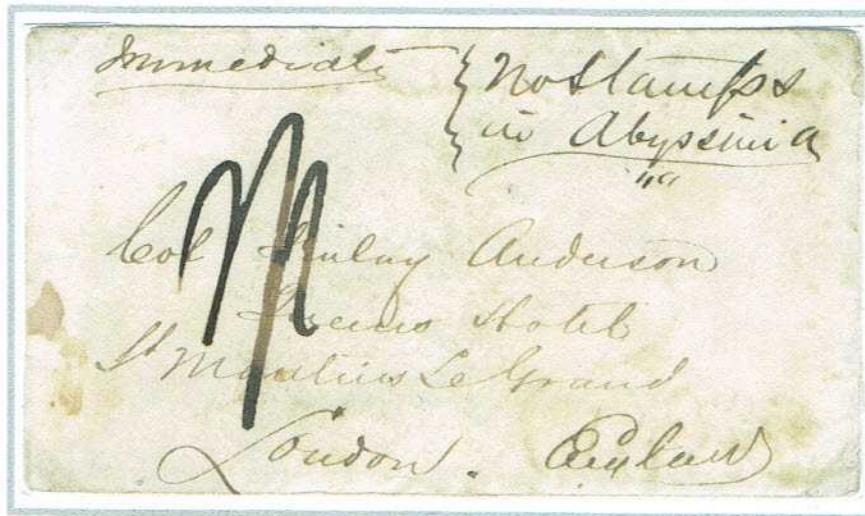 Immediate
No Stamps
in Abyssinia
Col Finlay Anderson
Queens Hotel
St Martins Le Grand
London. England